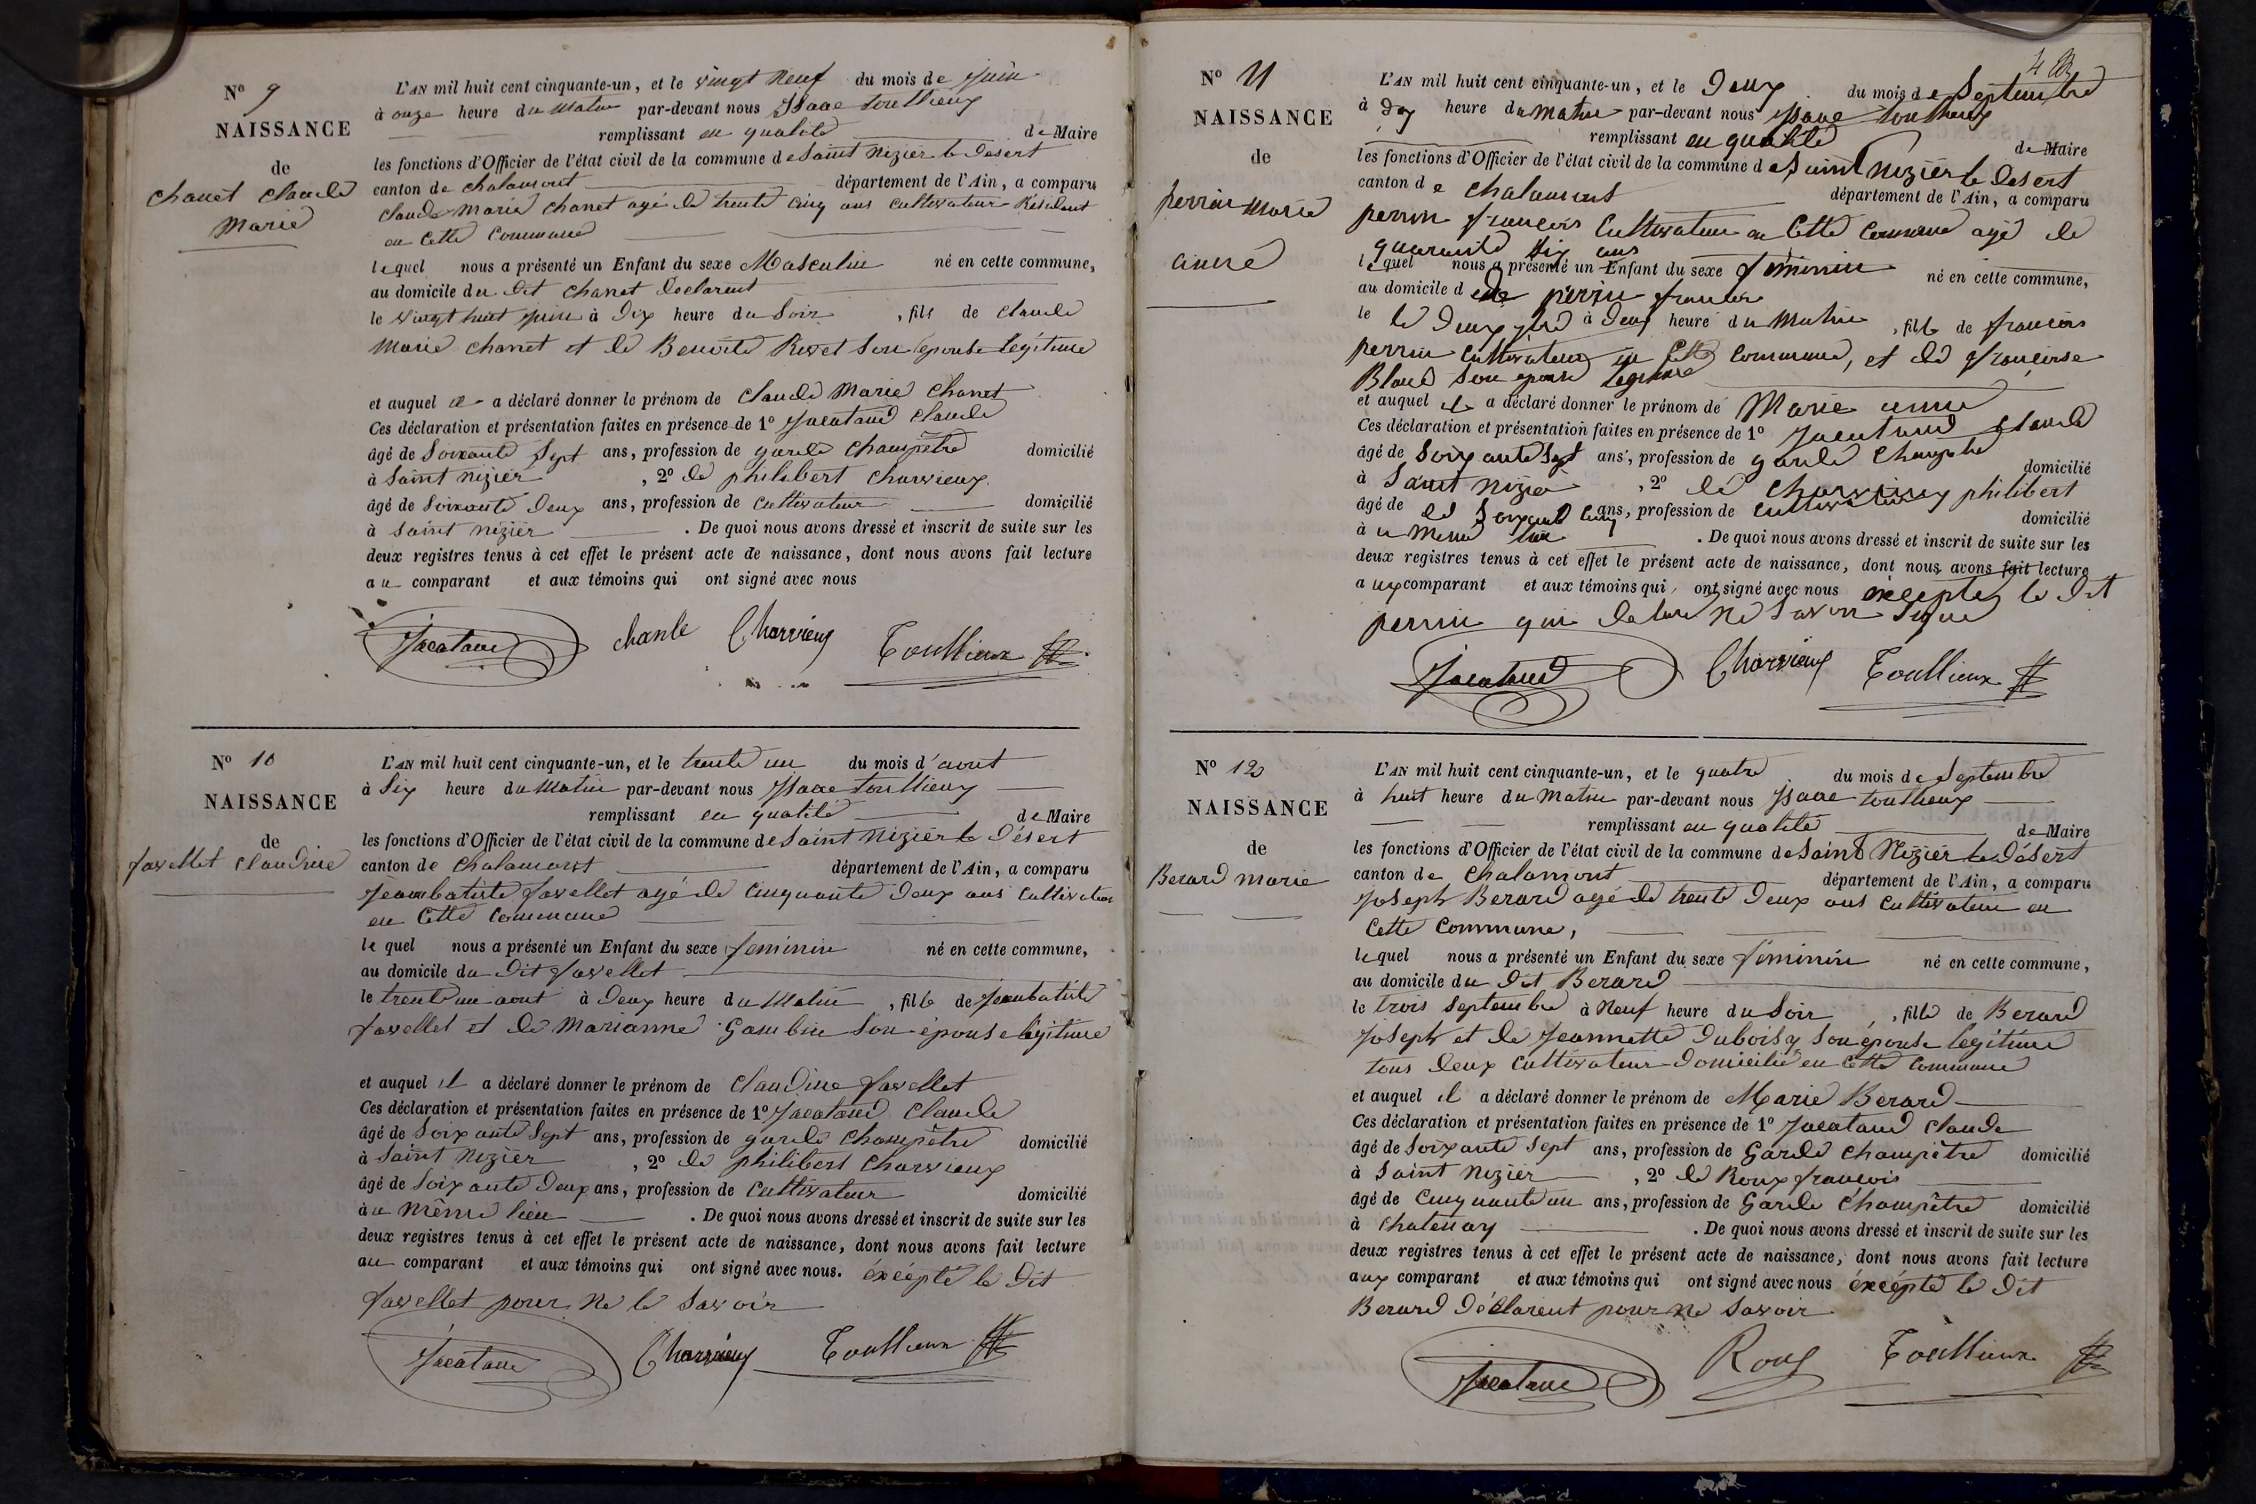 N° 9
NAISSANCE
de
Chanet Claude
Marie
L'AN mil huit cent cinquante-un, et le vingt neuf du mois de juin
à onze heure du matin par-devant nous Isaac Toullieux
remplissant en qualité de Maire
les fonctions d'Officier de l'état civil de la commune de Saint Nizier le Désert
canton de Chalamont département de l'Ain, a comparu
Claude Marie Chanet agé de trente cinq ans cultivateur Résidant
en Cette Commune
lequel nous a présenté un Enfant du sexe Masculin né en cette commune,
au domicile du dit Chanet Declarent
le vingt huit juin à Dix heure du Soir, fils de Claude
Marie Chanet et de Benoite Rivet Son épouse légitime
et auquel il a déclaré donner le prénom de Claude Marie Chanet
Ces déclaration et présentation faites en présence de 1° Jacataud Claude
âgé de Soixante Sept ans, profession de garde Champêtre domicilié
à Saint Nizier, 2° de philibert Charvieux
âgé de Soixante Deux ans, profession de Cultivateur domicilié
à Saint Nizier. De quoi nous avons dressé et inscrit de suite sur les
deux registres tenus à cet effet le présent acte de naissance, dont nous avons fait lecture
au comparant et aux témoins qui ont signé avec nous
Jacataud Charvieux Toullieux
N° 10
NAISSANCE
de
favellet Claudine
L'AN mil huit cent cinquante-un, et le trente un du mois d'aout
à Six heure du Matin par-devant nous Isaac Toullieux
remplissant en qualité de Maire
les fonctions d'Officier de l'état civil de la commune de Saint Nizier le Désert
canton de Chalamont département de l'Ain, a comparu
Jeanbatiste favellet agé de Cinquante Deux ans Cultivateur
en Cette Commune
le quel nous a présenté un Enfant du sexe feminin né en cette commune,
au domicile du Dit favellet
le trente un aout à Deux heure du Matin, fille de Jeanbatiste
favellet et de Marianne Gambin Son épouse légitime
et auquel il a déclaré donner le prénom de Claudine favellet
Ces déclaration et présentation faites en présence de 1° Jacataud Claude
âgé de Soixante Sept ans, profession de garde Champêtre domicilié
à Saint Nizier, 2° de philibert Charvieux
âgé de Soixante Deux ans, profession de Cultivateur domicilié
à u Même lieu. De quoi nous avons dressé et inscrit de suite sur les
deux registres tenus à cet effet le présent acte de naissance, dont nous avons fait lecture
au comparant et aux témoins qui ont signé avec nous. éxcépté le Dit
favellet pour Ne le Savoir
Jacataud Charvieux Toullieux
N° 11
NAISSANCE
de
perrin Marie
anne
L'AN mil huit cent cinquante-un, et le Deux du mois de Septembre
à Dix heure du matin par-devant nous Isaac Toullieux
remplissant en qualité de Maire
les fonctions d'Officier de l'état civil de la commune de Saint Nizier le Desert
canton de Chalamont département de l'Ain, a comparu
perrin françois Cultivateur en Cette Commune agé de
quarante Six ans
lequel nous a présenté un Enfant du sexe féminin né en cette commune,
au domicile d de perrin francois
le le Deux 7bre à Deux heure du Matin, fille de francois
perrin cultivateur en Cette Commune, et de françoise
Blanc Son épouse légitime
et auquel il a déclaré donner le prénom de Marie anne
Ces déclaration et présentation faites en présence de 1° Jacataud Claude
âgé de Soixante Sept ans, profession de garde Champêtre domicilié
à Saint Nizier, 2° de Charvieux philibert
âgé de de Soixante Cinq ans, profession de cultivateur domicilié
à u Même lieu. De quoi nous avons dressé et inscrit de suite sur les
deux registres tenus à cet effet le présent acte de naissance, dont nous avons fait lecture
aux comparant et aux témoins qui ont signé avec nous excepter le Dit
perrin qui declare Ne Savoir Signer
Jacataud Charvieux Toullieux
N° 12
NAISSANCE
de
Berard Marie
L'AN mil huit cent cinquante-un, et le quatre du mois de Septembre
à huit heure du Matin par-devant nous Isaac Toullieux
remplissant en qualité de Maire
les fonctions d'Officier de l'état civil de la commune de Saint Nizier le Désert
canton de Chalamont département de l'Ain, a comparu
Joseph Berard agé de trente Deux ans Cultivateur en
Cette Commune,
lequel nous a présenté un Enfant du sexe féminin né en cette commune,
au domicile du Dit Berard
le trois Septembre à Neuf heure du Soir, fille de Berard
Joseph et de Jeannette Duboisy Son épouse légitime
tous Deux Cultivateur Domicilié en Cette Commune
et auquel il a déclaré donner le prénom de Marie Berard
Ces déclaration et présentation faites en présence de 1° Jacataud Claude
âgé de Soixante Sept ans, profession de Garde Champêtre domicilié
à Saint Nizier, 2° de Roux francois
âgé de Cinquante un ans, profession de Garde Champêtre domicilié
à Chatenay. De quoi nous avons dressé et inscrit de suite sur les
deux registres tenus à cet effet le présent acte de naissance, dont nous avons fait lecture
aux comparant et aux témoins qui ont signé avec nous éxcépté le Dit
Berard Déclarent pour Ne Savoir
Jacataud Roux Toullieux